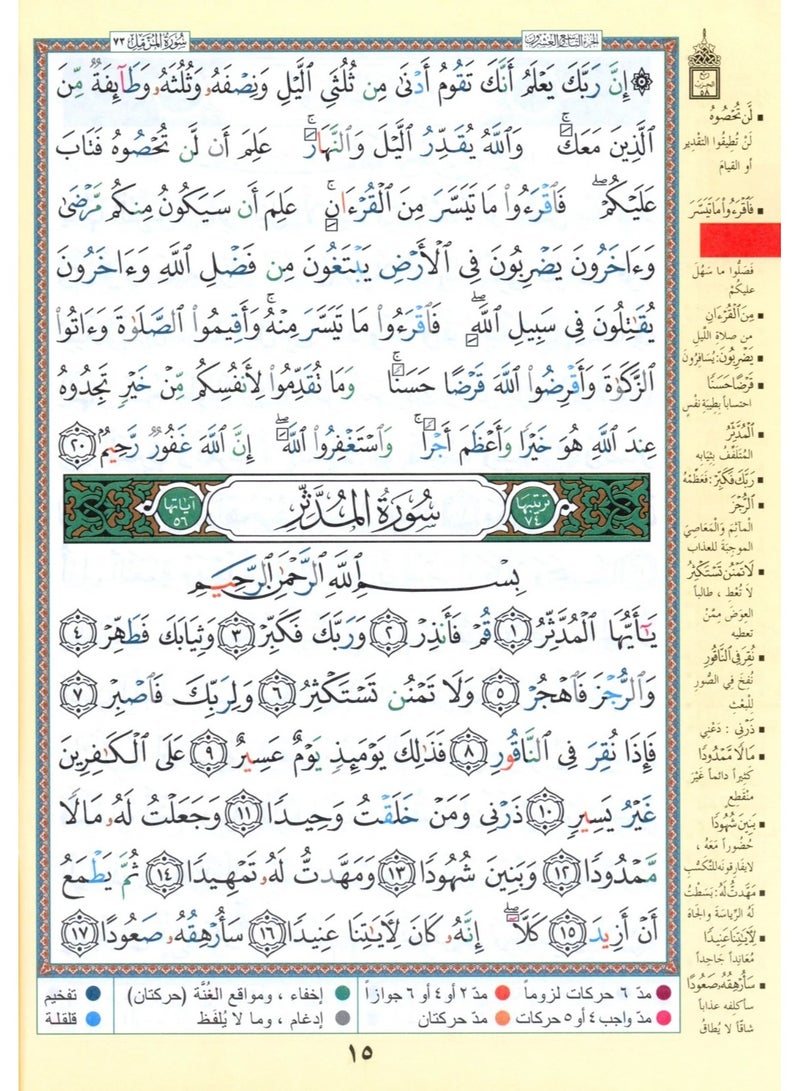 سُورَةُ المُزَّمِّل ٧٣
الجزء التاسع والعشرون
ربع
الحزب
٥٨
۞ إِنَّ رَبَّكَ يَعْلَمُ أَنَّكَ تَقُومُ أَدْنَىٰ مِن ثُلُثَيِ ٱلَّيْلِ وَنِصْفَهُۥ وَثُلُثَهُۥ وَطَآئِفَةٌ مِّنَ
ٱلَّذِينَ مَعَكَ ۚ وَٱللَّهُ يُقَدِّرُ ٱلَّيْلَ وَٱلنَّهَارَ ۚ عَلِمَ أَن لَّن تُحْصُوهُ فَتَابَ
عَلَيْكُمْ ۖ فَٱقْرَءُوا۟ مَا تَيَسَّرَ مِنَ ٱلْقُرْءَانِ ۚ عَلِمَ أَن سَيَكُونُ مِنكُم مَّرْضَىٰ
وَءَاخَرُونَ يَضْرِبُونَ فِى ٱلْأَرْضِ يَبْتَغُونَ مِن فَضْلِ ٱللَّهِ وَءَاخَرُونَ
يُقَٰتِلُونَ فِى سَبِيلِ ٱللَّهِ ۖ فَٱقْرَءُوا۟ مَا تَيَسَّرَ مِنْهُ ۚ وَأَقِيمُوا۟ ٱلصَّلَوٰةَ وَءَاتُوا۟
ٱلزَّكَوٰةَ وَأَقْرِضُوا۟ ٱللَّهَ قَرْضًا حَسَنًا ۚ وَمَا تُقَدِّمُوا۟ لِأَنفُسِكُم مِّنْ خَيْرٍ تَجِدُوهُ
عِندَ ٱللَّهِ هُوَ خَيْرًا وَأَعْظَمَ أَجْرًا ۚ وَٱسْتَغْفِرُوا۟ ٱللَّهَ ۖ إِنَّ ٱللَّهَ غَفُورٌ رَّحِيمٌ ٢٠
ترتيبها ٧٤ سُورَةُ المُدَّثِّر آياتها ٥٦
بِسْمِ ٱللَّهِ ٱلرَّحْمَٰنِ ٱلرَّحِيمِ
يَٰٓأَيُّهَا ٱلْمُدَّثِّرُ ١ قُمْ فَأَنذِرْ ٢ وَرَبَّكَ فَكَبِّرْ ٣ وَثِيَابَكَ فَطَهِّرْ ٤
وَٱلرُّجْزَ فَٱهْجُرْ ٥ وَلَا تَمْنُن تَسْتَكْثِرُ ٦ وَلِرَبِّكَ فَٱصْبِرْ ٧
فَإِذَا نُقِرَ فِى ٱلنَّاقُورِ ٨ فَذَٰلِكَ يَوْمَئِذٍ يَوْمٌ عَسِيرٌ ٩ عَلَى ٱلْكَٰفِرِينَ
غَيْرُ يَسِيرٍ ١٠ ذَرْنِى وَمَنْ خَلَقْتُ وَحِيدًا ١١ وَجَعَلْتُ لَهُۥ مَالًا
مَّمْدُودًا ١٢ وَبَنِينَ شُهُودًا ١٣ وَمَهَّدتُّ لَهُۥ تَمْهِيدًا ١٤ ثُمَّ يَطْمَعُ
أَنْ أَزِيدَ ١٥ كَلَّآ ۖ إِنَّهُۥ كَانَ لِءَايَٰتِنَا عَنِيدًا ١٦ سَأُرْهِقُهُۥ صَعُودًا ١٧
▪ لَّن تُحْصُوهُ
لَنْ تُطِيقُوا التقدير
أو القيامَ
▪ فَٱقْرَءُوا۟ مَا تَيَسَّرَ
فَصَلُّوا ما سَهُلَ
عليكُمْ
▪ مِنَ ٱلْقُرْءَانِ
من صلاةِ اللَّيل
▪ يَضْرِبُونَ: يُسَافِرُونَ
▪ قَرْضًا حَسَنًا
احتساباً بِطِيبَةِ نفْسٍ
▪ ٱلْمُدَّثِّرُ
المُتَلَفِّفُ بثِيَابِه
▪ رَبَّكَ فَكَبِّرْ: فَعَظِّمْهُ
▪ ٱلرُّجْزَ
المآثِمَ وَالْمَعَاصِيَ
الموجِبَةَ للعذابِ
▪ لَا تَمْنُن تَسْتَكْثِرُ
لا تُعْطِ ، طالباً
العِوَضَ مِمَّنْ
تعطيه
▪ نُقِرَ فِى ٱلنَّاقُورِ
نُفِخَ فِي الصُّورِ
لِلْبَعْثِ
▪ ذَرْنِى : دَعْنِي
▪ مَالًا مَّمْدُودًا
كثيراً دائماً غَيْرَ
مُنْقَطِعٍ
▪ بَنِينَ شُهُودًا
حُضُوراً مَعَهُ ،
لا يفارِقونَه للتكسُّبِ
▪ مَهَّدتُّ لَهُ: بَسَطْتُ
لَهُ الرِّيَاسَةَ والجَاهَ
▪ لِءَايَٰتِنَا عَنِيدًا
مُعَانِداً جَاحِداً
▪ سَأُرْهِقُهُۥ صَعُودًا
سأكلفه عذاباً
شاقّاً لا يُطَاقُ
● مدّ ٦ حركات لزوماً ● مدّ ٢ أو ٤ أو ٦ جوازاً ● إخفاء ، ومواقع الغُنَّة (حركتان) ● تفخيم
● مدّ واجب ٤ أو ٥ حركات ● مدّ حركتان ● إدغام ، وما لا يُلفَظ ● قلقلة
١٥